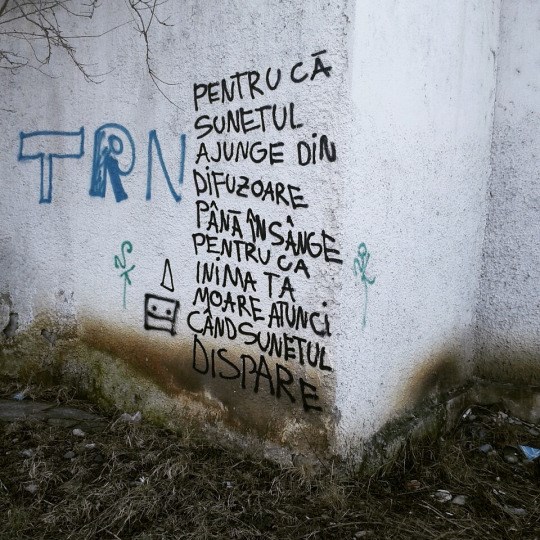 PENTRU CĂ
SUNETUL
AJUNGE DIN
DIFUZOARE
PÂNĂ ÎN SÂNGE
PENTRU CA
INIMA TA
MOARE ATUNCI
CÂND SUNETUL
DISPARE
TRN